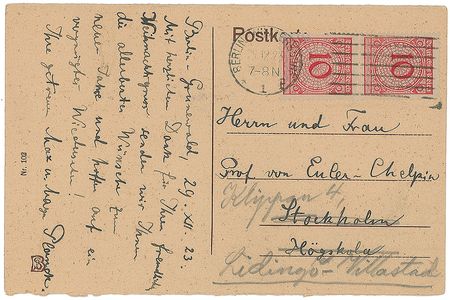 Postkarte
Berlin-Grunewald, 29. XII. 23.
Mit herzlichem Dank für Ihren freundlichen
Weihnachtsgruss senden wir Ihnen
die allerbesten Wünsche zum
neuen Jahre und hoffen auf ein
vergnügtes Wiedersehen!
Ihre getreuen Max u. Marga Planck.
BERLIN
12.23
7-8 N
10
10
Herrn und Frau
Prof. von Euler-Chelpin
Klippan 4,
Stockholm
Högskola
Lidingö-Villastad
No. 102